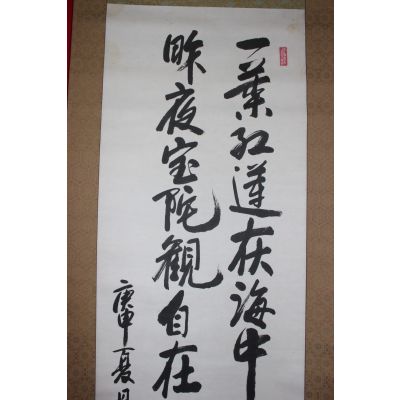 一葉紅蓮在海中
昨夜宝陀觀自在
庚申夏